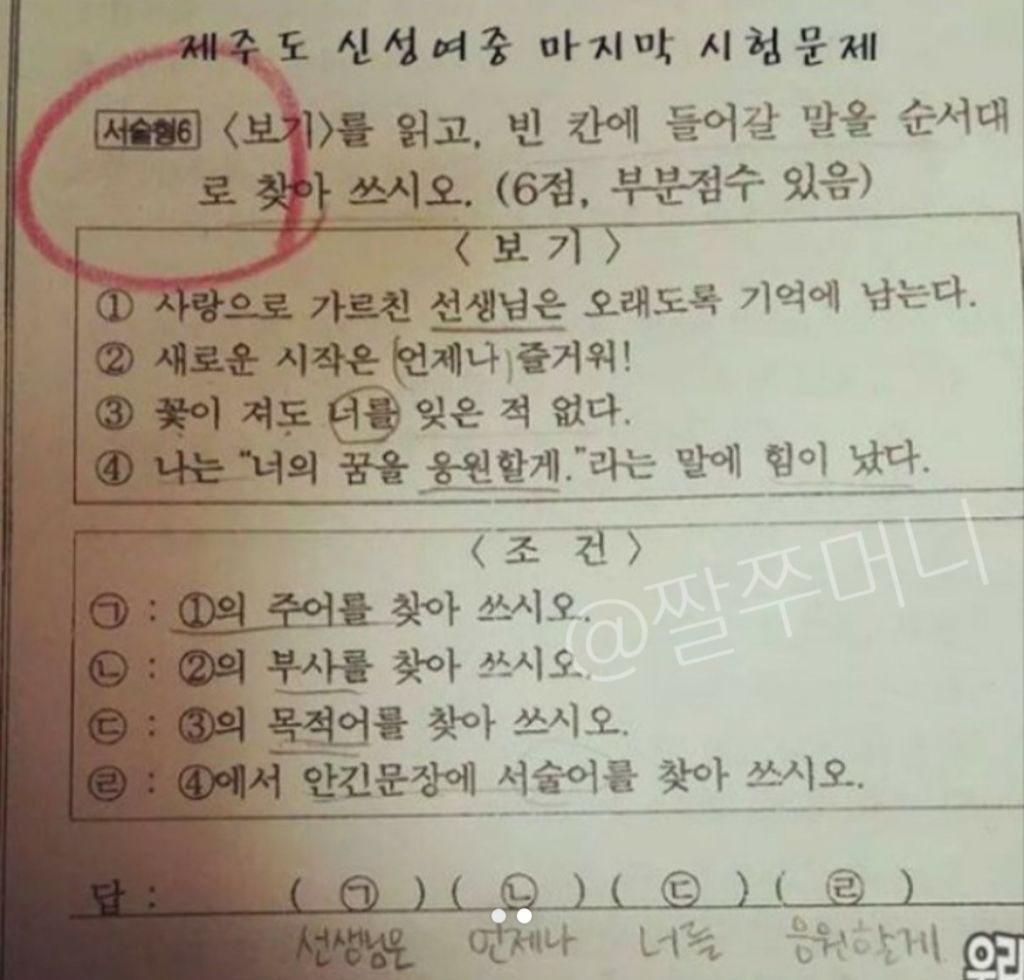 제주도 신성여중 마지막 시험문제
서술형6 〈보기〉를 읽고, 빈 칸에 들어갈 말을 순서대
로 찾아 쓰시오. (6점, 부분점수 있음)
〈 보 기 〉
① 사랑으로 가르친 선생님은 오래도록 기억에 남는다.
② 새로운 시작은 (언제나) 즐거워!
③ 꽃이 져도 너를 잊은 적 없다.
④ 나는 “너의 꿈을 응원할게.”라는 말에 힘이 났다.
〈 조 건 〉
㉠ : ①의 주어를 찾아 쓰시오.
㉡ : ②의 부사를 찾아 쓰시오.
㉢ : ③의 목적어를 찾아 쓰시오.
㉣ : ④에서 안긴문장에 서술어를 찾아 쓰시오.
@짤쭈머니
답 : ( ㉠ ) ( ㉡ ) ( ㉢ ) ( ㉣ )
선생님은 언제나 너를 응원할게
우리